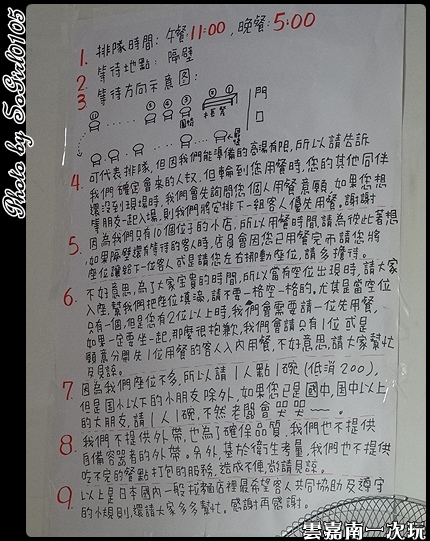 Photo by SoGirl0105
1. 排隊時間：午餐11:00，晚餐：5:00
2. 等待地點：隔壁
3. 等待方向示意圖：
門口
4. 可代表排隊，但因我們能準備的高湯有限，所以請告訴
我們確定會來的人數，但輪到您用餐時，您的其他同伴
還沒到現場時，我們會先詢問您個人用餐意願，如果您想
等朋友一起入場，則我們將安排下一組客人優先用餐，謝謝
5. 因為我們只有10個位子的小店，所以用餐時間請為彼此著想
，如果隔壁還有等待的客人時，店員會因您已用餐完而請您將
座位讓給下一位客人或是請您左右挪動座位，請多擔待。
6. 不好意思，為了大家寶貴的時間，所以當有空位出現時，請大家
入座，幫我們把座位填滿，請不要一格空一格的，尤其是當空位
只有一個，但是您有2位以上時，我們會需要請一位先用餐，
如果一定要坐一起，那麼很抱歉，我們會請只有1位 或是
願意分開先1位用餐的客人入內用餐，不好意思，請大家幫忙
及見諒。
7. 因為我們座位不多，所以請1人點1碗(低消200)，
但是國小以下的小朋友除外，如果您已是國中，國中以上
的大朋友，請1人1碗，不然老闆會哭哭～～。
8. 我們不提供外帶，也為了確保品質，我們也不提供
自備容器者的外帶。另外，基於衛生考量，我們也不提供
吃不完的餐點打包的服務，造成不便，尚請見諒。
9. 以上是日本國內一般拉麵店裡最希望客人共同協助及遵守
的小規則，還請大家多多幫忙。感謝再感謝。
雲嘉南一次玩